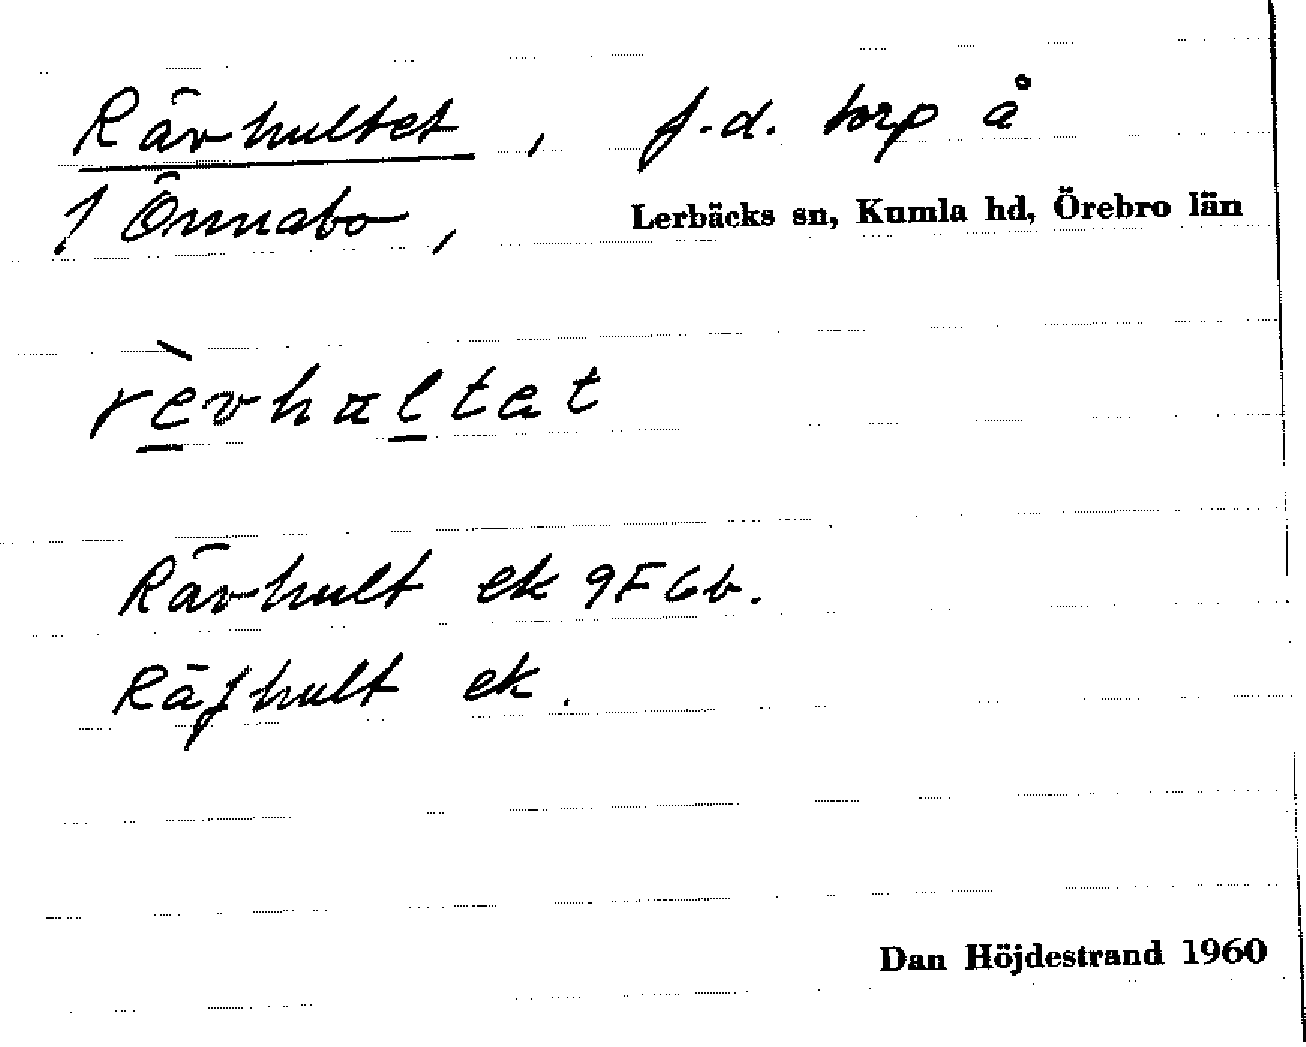 Rävhultet, f.d. torp å
f Önnabo, Lerbäcks sn, Kumla hd, Örebro län
rèvhaltat
Rävhult ek 9F6b.
Räfhult ek.
Dan Höjdestrand 1960